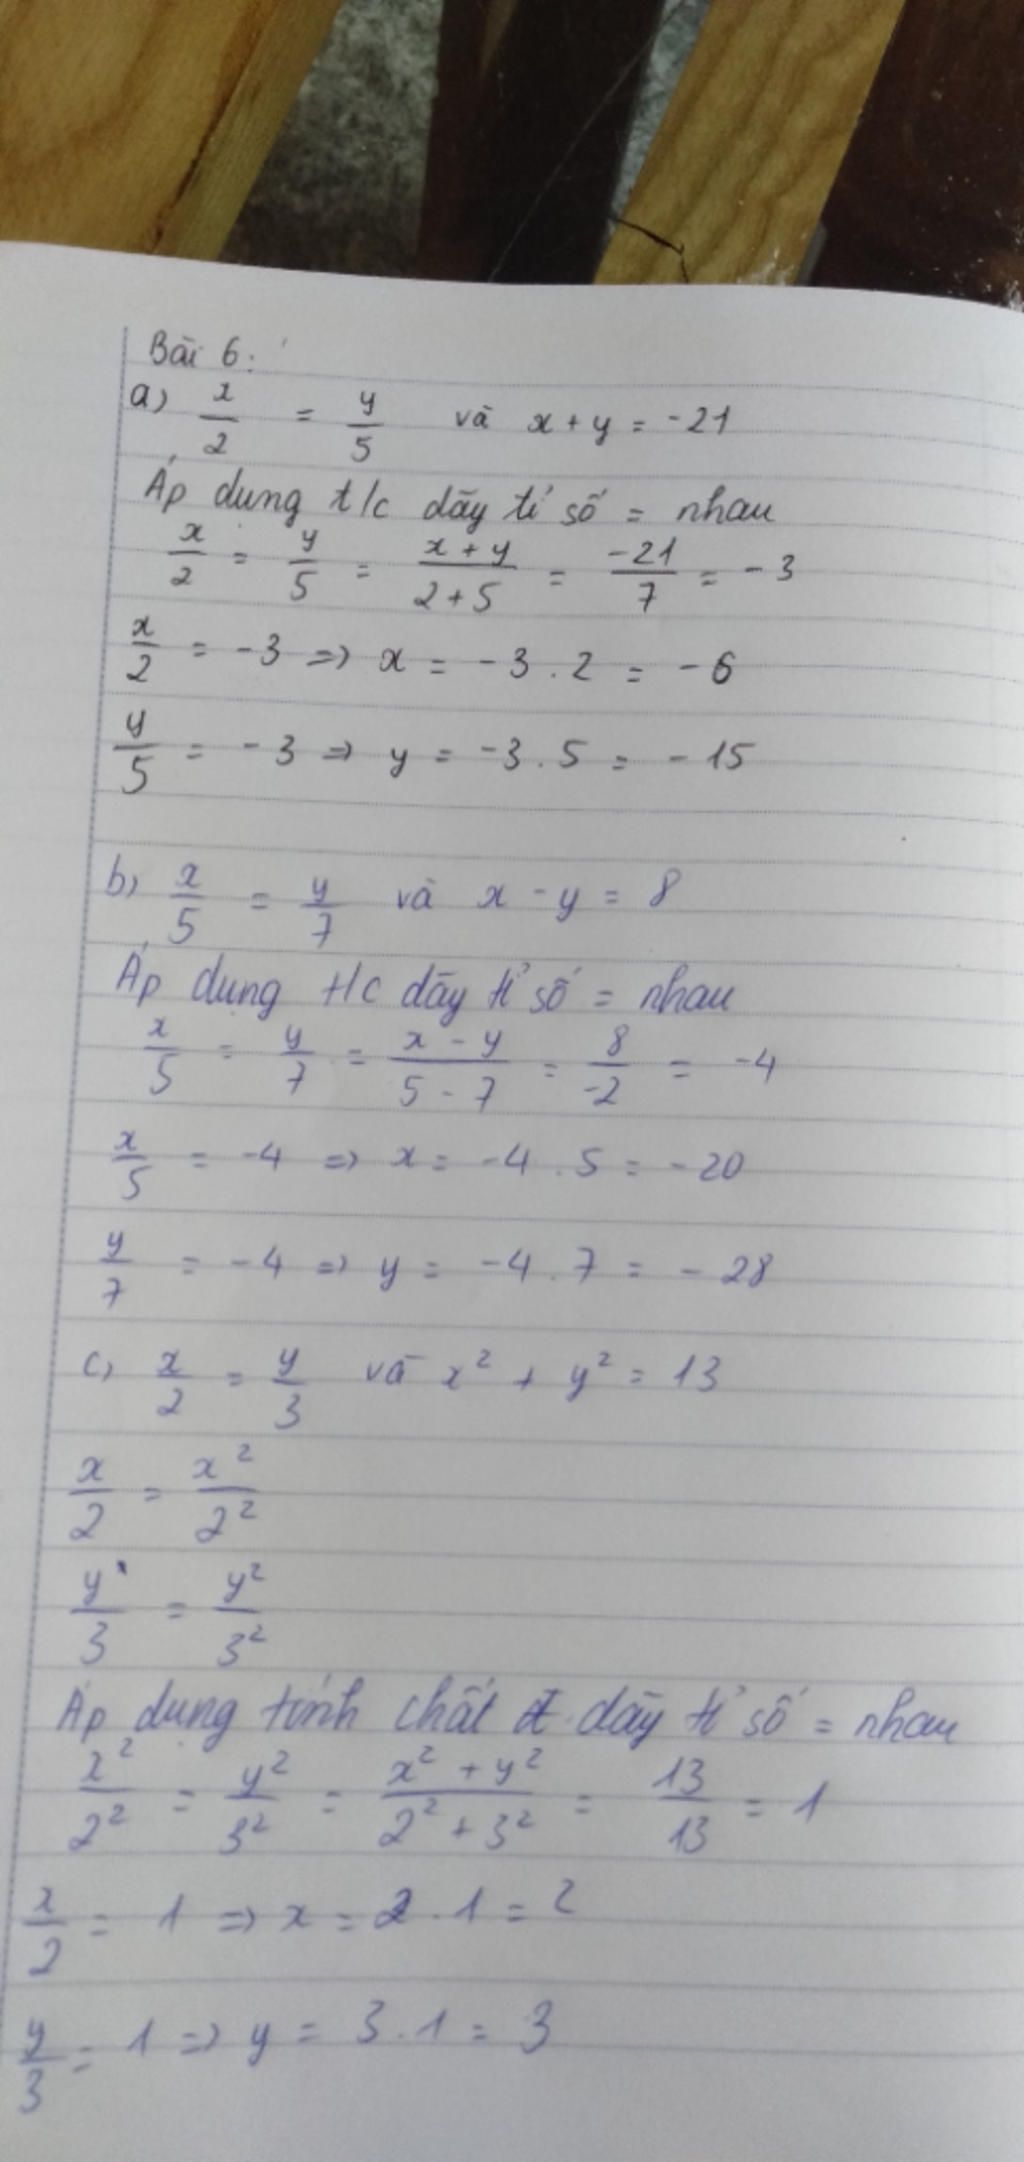 Bài 6:
a) x/2 = y/5 và x + y = -21
Áp dụng t/c dãy tỉ số = nhau
x/2 = y/5 = (x + y)/(2 + 5) = -21/7 = -3
x/2 = -3 => x = -3 . 2 = -6
y/5 = -3 => y = -3 . 5 = -15
b) x/5 = y/7 và x - y = 8
Áp dụng t/c dãy tỉ số = nhau
x/5 = y/7 = (x - y)/(5 - 7) = 8/-2 = -4
x/5 = -4 => x = -4 . 5 = -20
y/7 = -4 => y = -4 . 7 = -28
c) x/2 = y/3 và x² + y² = 13
x/2 = x²/2²
y/3 = y²/3²
Áp dụng tính chất dãy tỉ số = nhau
x²/2² = y²/3² = (x² + y²)/(2² + 3²) = 13/13 = 1
x/2 = 1 => x = 2 . 1 = 2
y/3 = 1 => y = 3 . 1 = 3